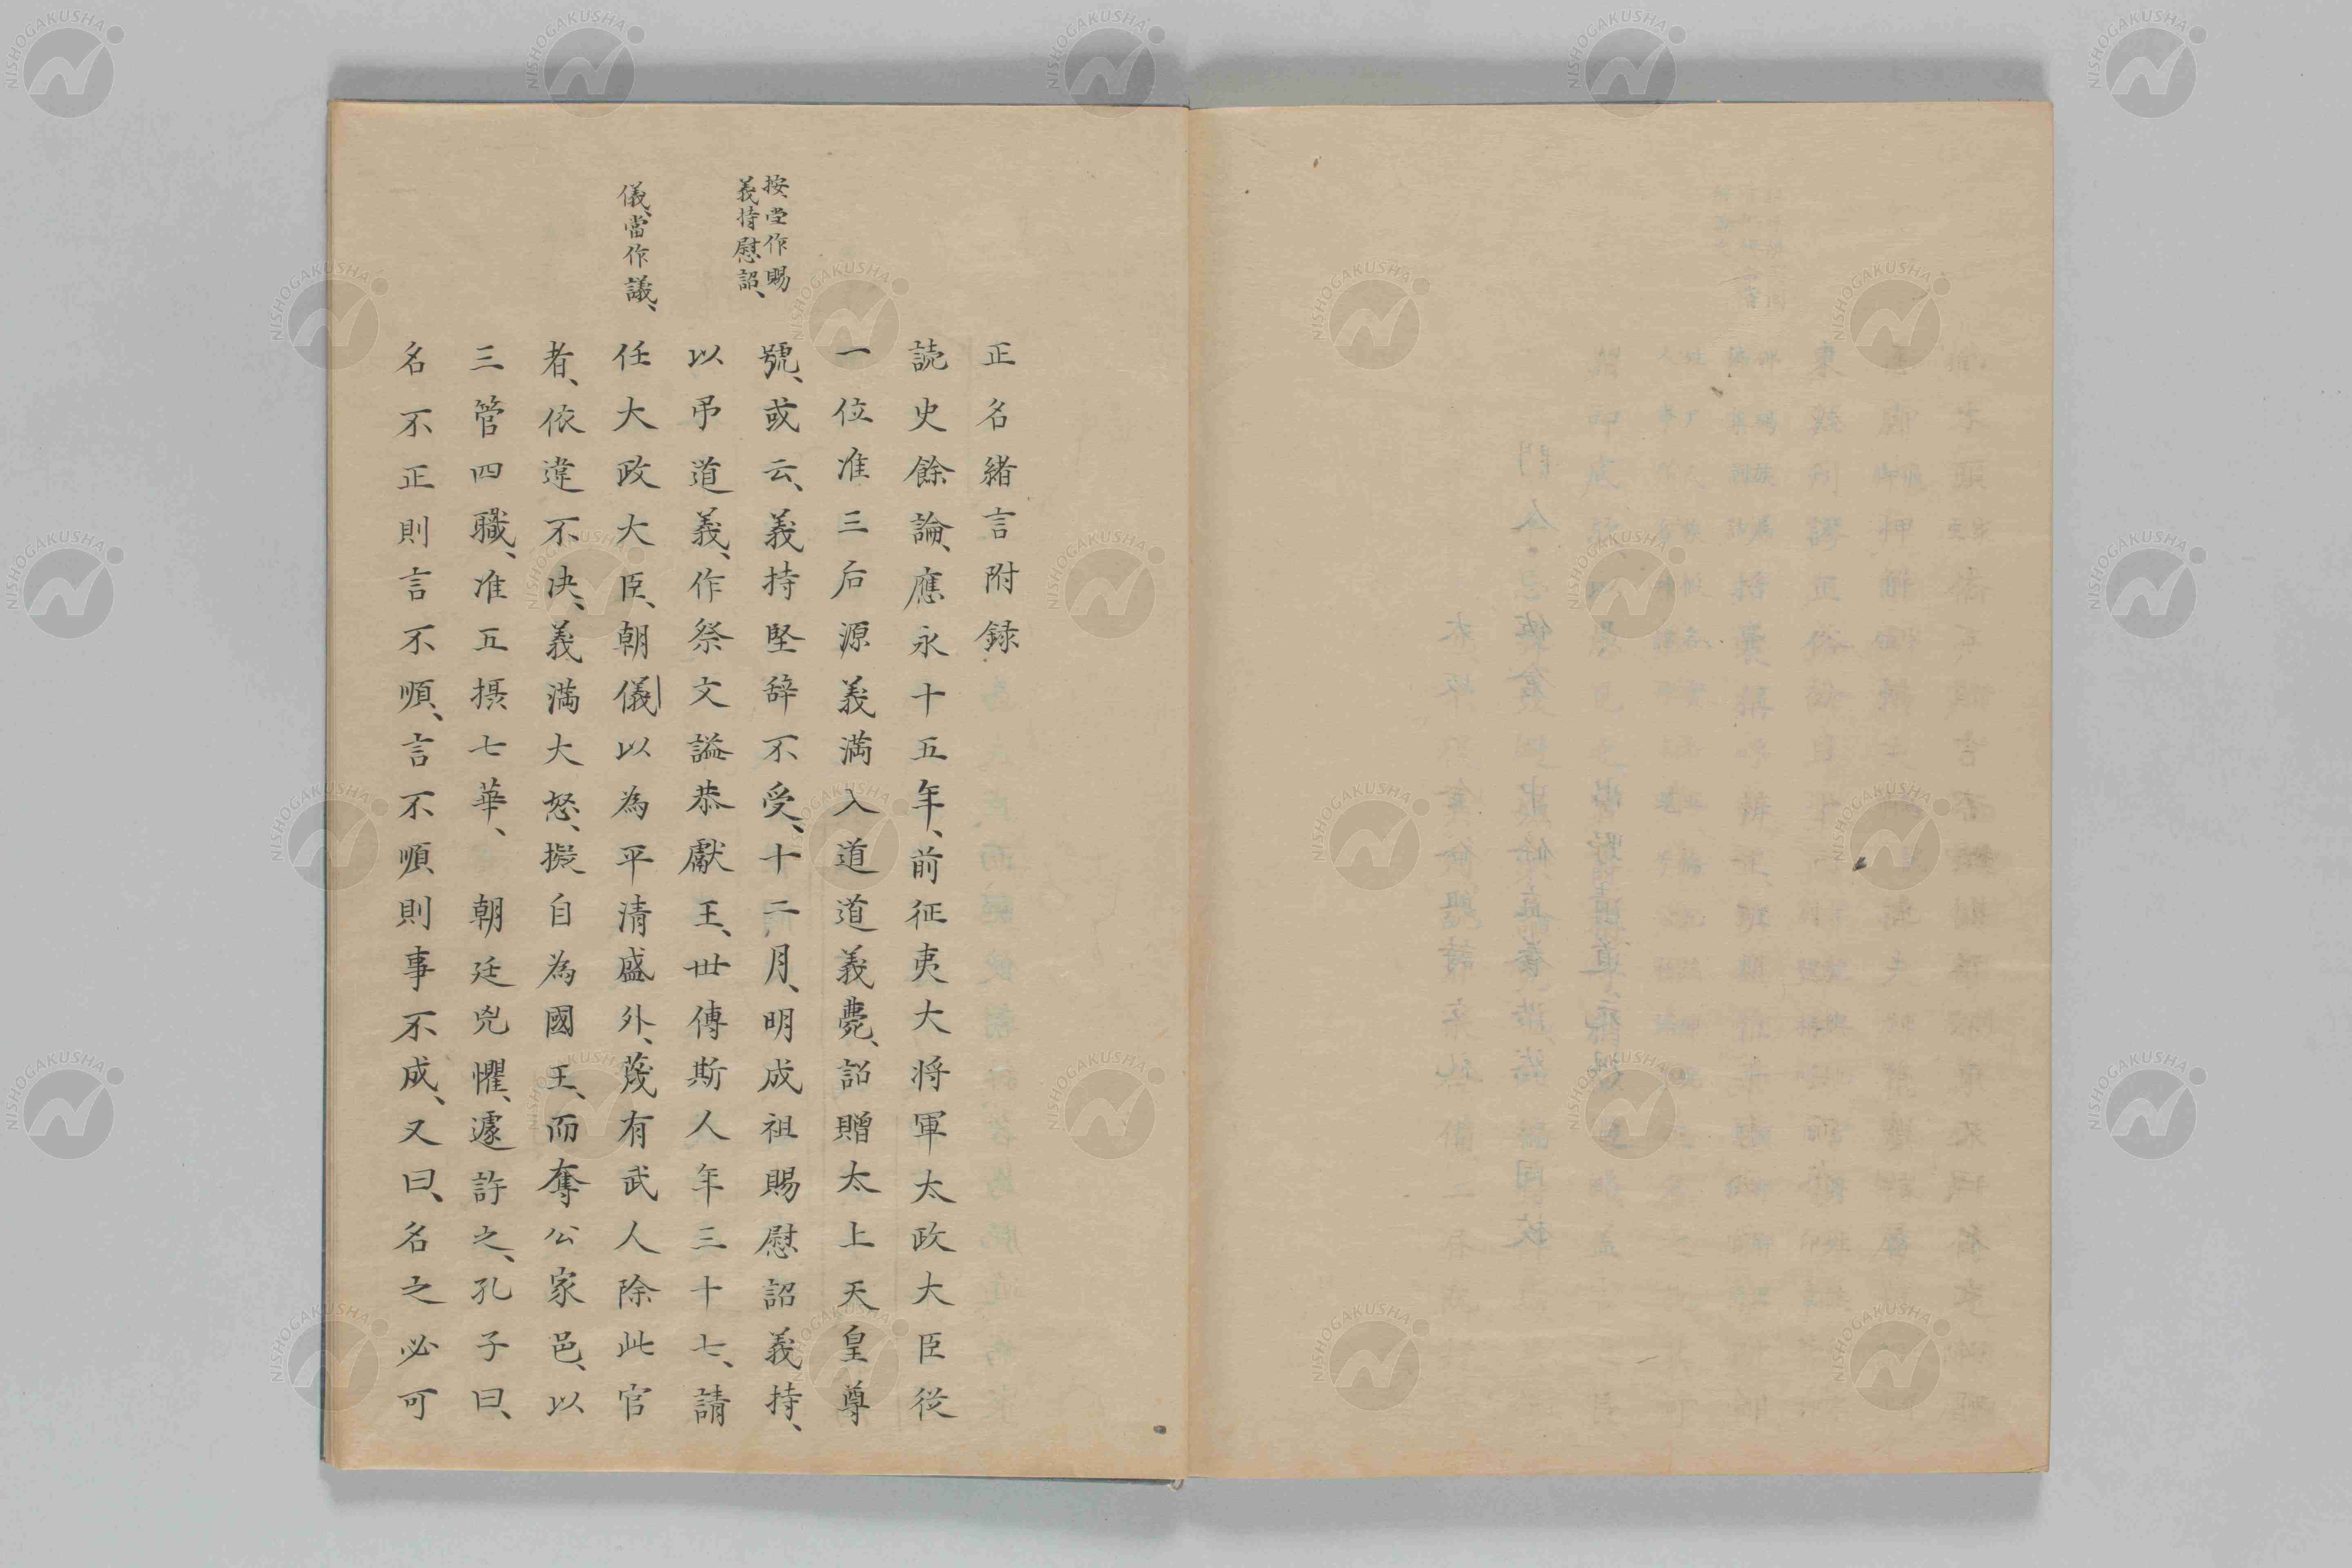 正名緒言附録
読史餘論、應永十五年、前征夷大将軍太政大臣従
一位准三后源義満入道道義薨、詔贈太上天皇尊
號、或云、義持堅辞不受、十二月、明成祖賜慰詔義持、
以弔道義、作祭文謚恭獻王、世傳斯人年三十七、請
任大政大臣、朝儀以為平清盛外、蔑有武人除此官
者、依違不决、義満大怒、擬自為國王、而奪公家邑、以
三管四職、准五摂七華、朝廷兇懼、遽許之、孔子曰、
名不正則言不順、言不順則事不成、又曰、名之必可
按受作賜
義持慰詔、
儀、當作議、
NISHOGAKUSHA